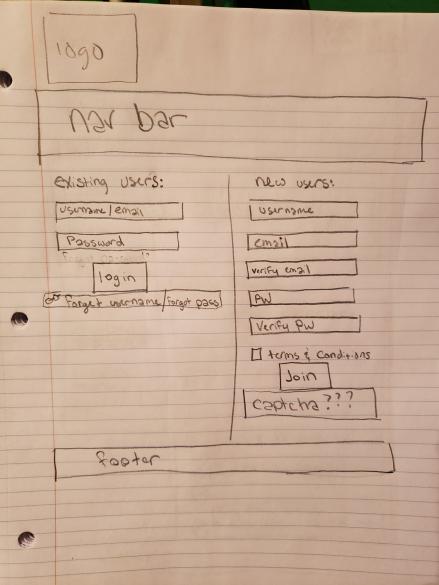 logo
nav bar
existing users:
username/email
Password
login
forget username/forgot pass
new users:
username
email
verify email
PW
Verify PW
terms & conditions
Join
captcha???
footer